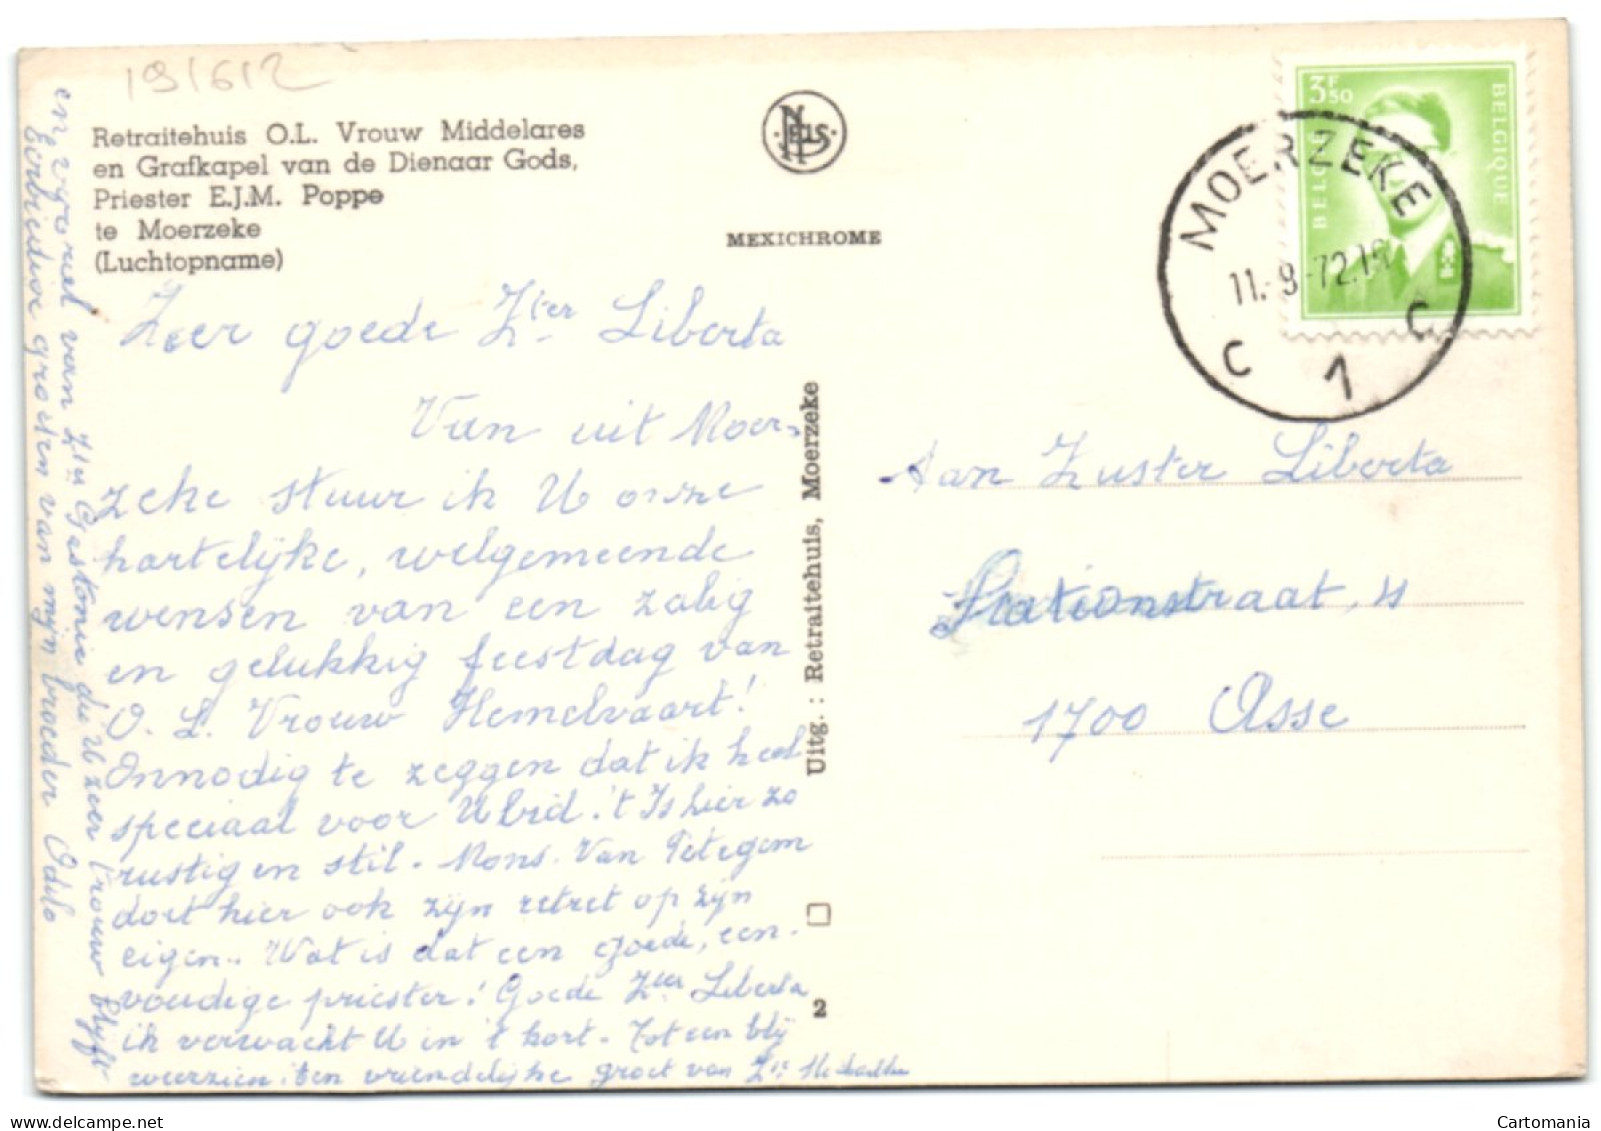 191612
Retraitehuis O.L. Vrouw Middelares
en Grafkapel van de Dienaar Gods,
Priester E.J.M. Poppe
te Moerzeke
(Luchtopname)
NELS
MEXICHROME
3F50
BELGIQUE
BELGIË
MOERZEKE
11.-8-72.
C 1 C
Zeer goede Zter Liberta
Van uit Moer-
zeke stuur ik U onze
hartelijke, welgemeende
wensen van een zalig
en gelukkig feestdag van
O. L. Vrouw Hemelvaart!
Onnodig te zeggen dat ik heel
speciaal voor U bid. 't Is hier zo
rustig en stil. Mons. Van Petegem
doet hier ook zijn retret op zijn
eigen. Wat is dat een goede, een-
voudige priester! Goede Zter Liberta
ik verwacht U in 't kort. Tot een blij
weerzien. Een vriendelijke groet van Zr
en, van Zter die U zeer trouw blijft
groeten van mijn broeder Odilo
Uitg. : Retraitehuis, Moerzeke
2
Aan Zuster Liberta
Stationstraat, 4
1700 Asse
Cartomania
delcampe.net